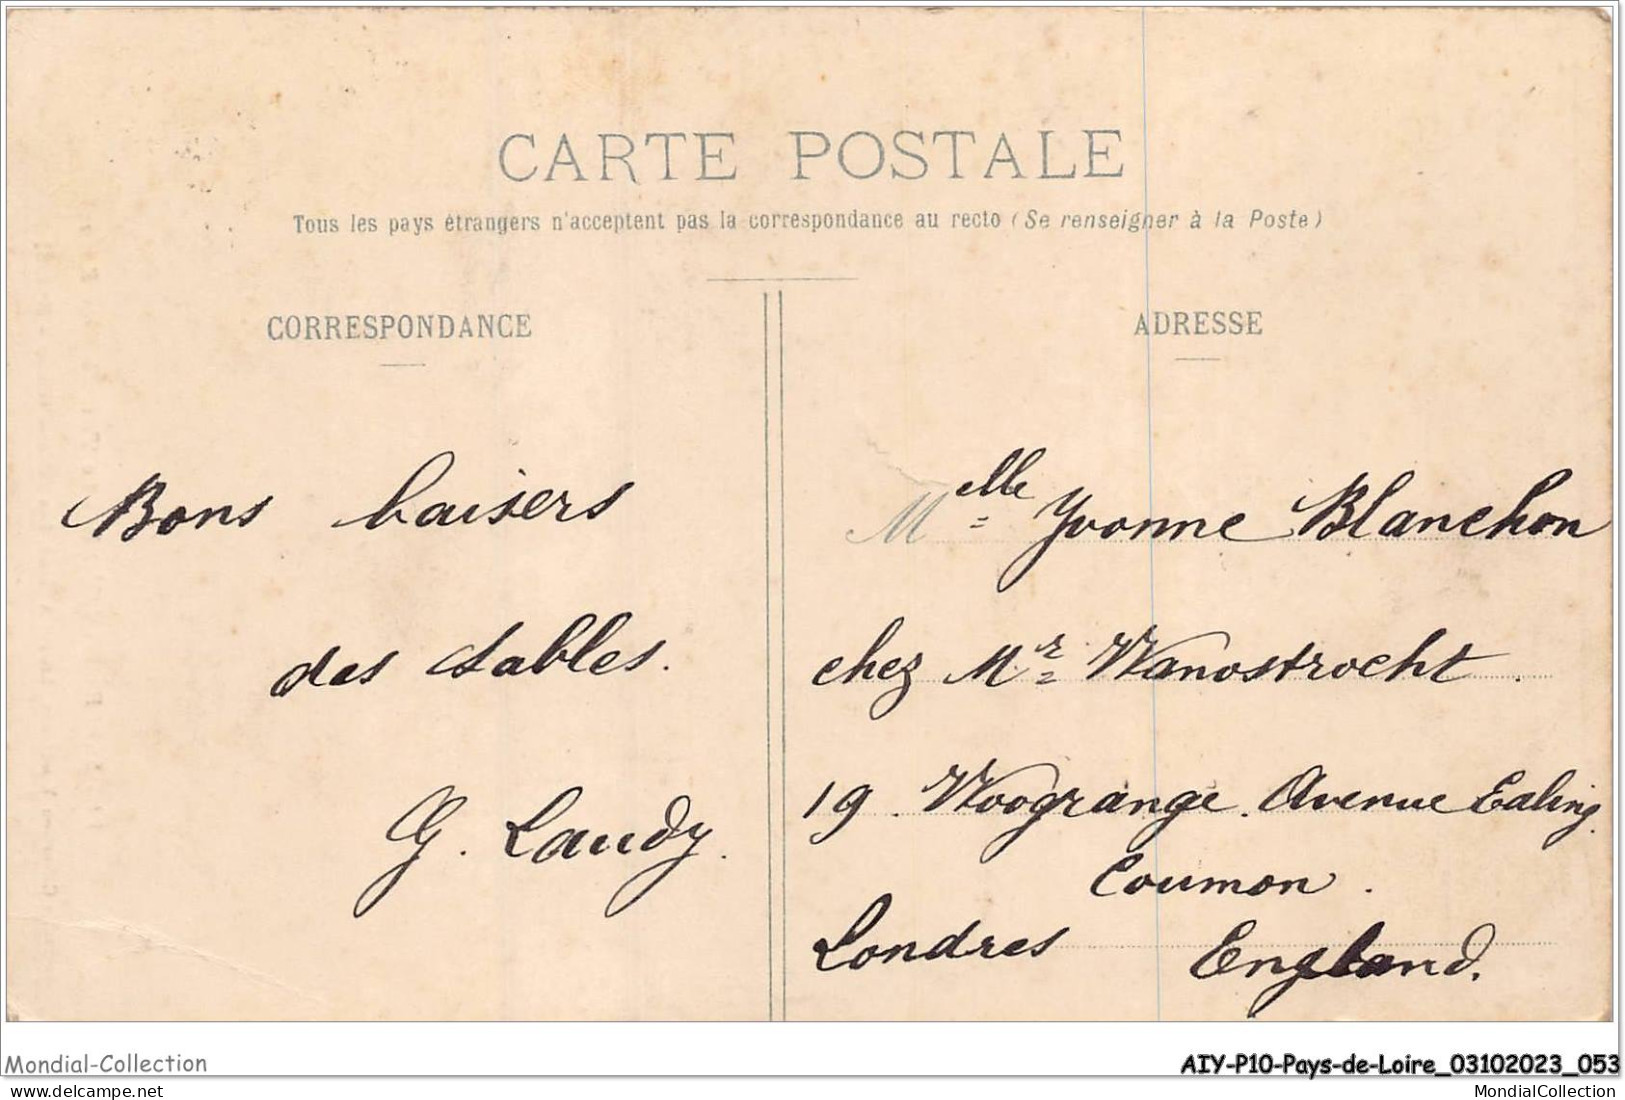 CARTE POSTALE
Tous les pays étrangers n'acceptent pas la correspondance au recto (Se renseigner à la Poste)
CORRESPONDANCE
Bons baisers
des Sables.
G. Laudy.
ADRESSE
Melle Yvonne Blanchon
chez Mr Wanostrocht.
19. Woogrange. Avenue Ealing.
Coumon.
Londres England.
Mondial-Collection
AIY-P10-Pays-de-Loire_03102023_053
www.delcampe.net
MondialCollection